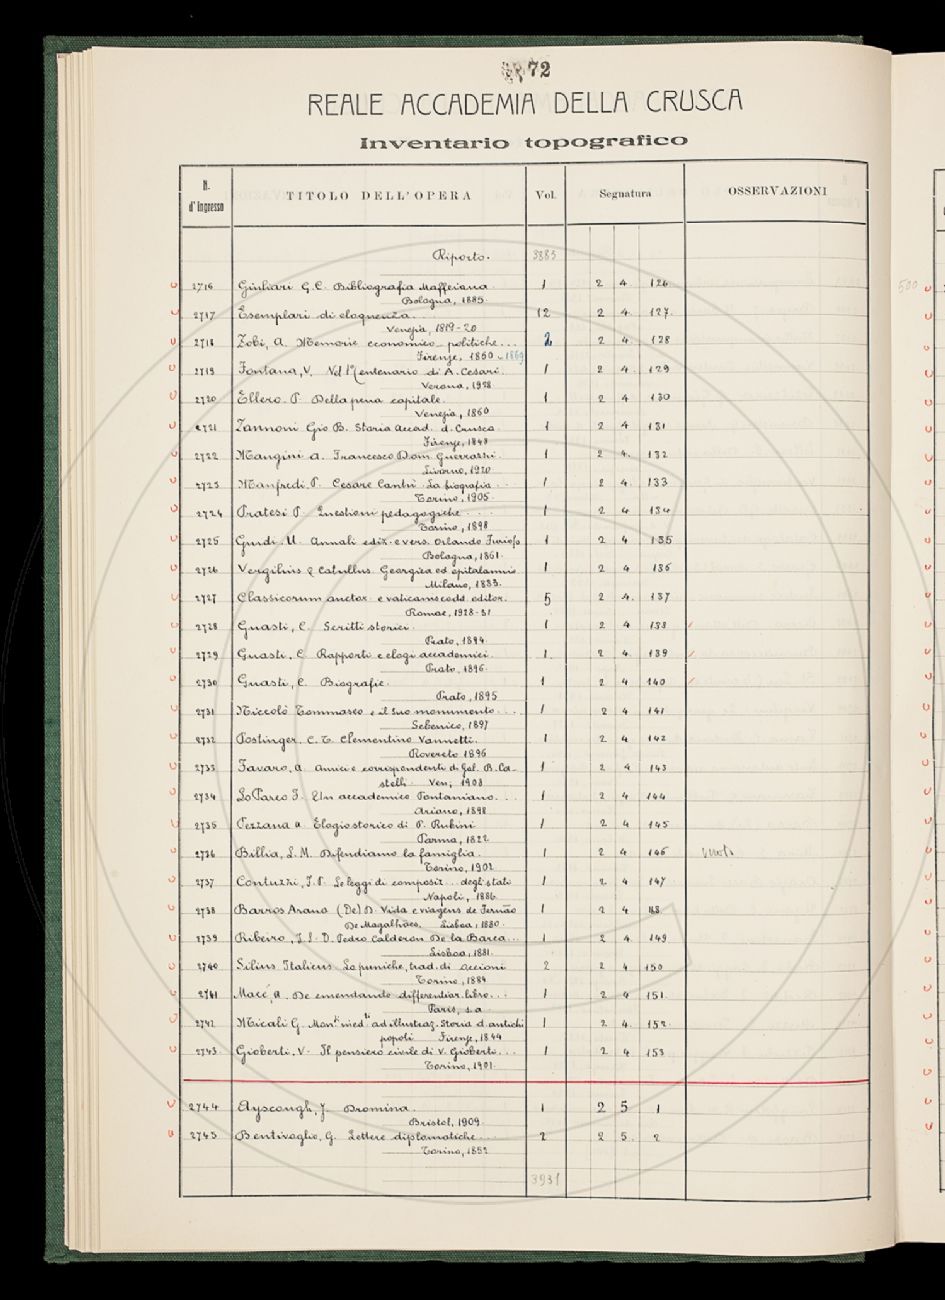 72
REALE ACCADEMIA DELLA CRUSCA
Inventario topografico
N. d'Ingresso TITOLO DELL'OPERA Vol. Segnatura OSSERVAZIONI
Riporto. 3883
2716 Giuliari G.C. Bibliografia Maffeiana 1 2 4 126
Bologna, 1885
2717 Esemplari di eloquenza... 12 2 4 127
Venezia, 1819-20
2718 Zobi, A. Memorie economico-politiche... 2 2 4 128
Firenze, 1860-1869
2719 Fontana, V. Nel 1º Centenario di A. Cesari. 1 2 4 129
Verona, 1928
2720 Ellero. P. Della pena capitale. 1 2 4 130
Venezia, 1860
2721 Zannoni Gio B. Storia Accad. d. Crusca 1 2 4 131
Firenze, 1848
2722 Mangini A. Francesco Dom. Guerrazzi. 1 2 4 132
Livorno, 1920
2723 Manfredi, P. Cesare Cantù. La biografia... 1 2 4 133
Torino, 1905.
2724 Pratesi P. Questioni pedagogiche... 1 2 4 134
Torino, 1898
2725 Guidi. U. Annali ediz. e vers. Orlando Furioso 1 2 4 135
Bologna, 1861.
2726 Vergilius & Catullus. Georgica ed epitalamio 1 2 4 136
Milano, 1883.
2727 Classicorum auctor. e vaticanis codd. editor. 5 2 4 137
Romae, 1928-31
2728 Guasti, C. Scritti storici. 1 2 4 138
Prato, 1894
2729 Guasti, C. Rapporti e elogi accademici. 1 2 4 139
Prato, 1896.
2730 Guasti, C. Biografie. 1 2 4 140
Prato, 1895
2731 Niccolò Tommaseo e il suo monumento... 1 2 4 141
Sebenico, 1897
2732 Postinger, C. T. Clementino Vannetti. 1 2 4 142
Rovereto 1896
2733 Favaro, A. Amici e corrispondenti di Gal. B. Ca- 1 2 4 143
stelli. Ven; 1908
2734 Lo Parco F. Un accademico Pontaniano... 1 2 4 144
Ariano, 1898
2735 Pezzana A. Elogio storico di P. Rubini 1 2 4 145
Parma, 1822.
2736 Billia, L. M. Difendiamo la famiglia. 1 2 4 146
Torino, 1902
2737 Contuzzi, F. P. Le leggi di composiz... degli stati 1 2 4 147
Napoli, 1886
2738 Barros Arana (De) D. Vida e viagens de Fernão 1 2 4 148
De Magalhães. Lisboa, 1880.
2739 Ribeiro, J. S. D. Pedro Calderon De la Barca... 1 2 4 149
Lisboa, 1881.
2740 Silius Italicus. Le puniche, trad. di Occioni 2 2 4 150
Torino, 1884
2741 Macé, A. De emendando differentiar. libro... 1 2 4 151
Paris, s.a
2742 Micali G. Mon.ti ined.ti ad illustraz. Storia d. antichi 1 2 4 152
popoli Firenze, 1844
2743 Gioberti. V. Il pensiero civile di V. Gioberti... 1 2 4 153
Torino, 1901.
2744 Ayscough, J. Dromina. 1 2 5 1
Bristol, 1909.
2745 Bentivoglio, G. Lettere diplomatiche... 2 2 5 2
Torino, 1852
3931
500